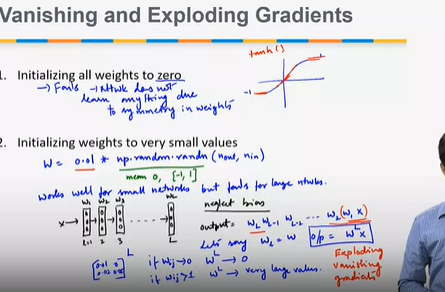 Vanishing and Exploding Gradients
tanh()
1
-1
1. Initializing all weights to zero
→ Fails → Ntwk does not
learn anything due
to symmetry in weights
2. Initializing weights to very small values
W = 0.01 * np.random.randn (nout, nin)
mean 0, [-1, 1]
works well for small networks but fails for large ntwks.
neglect bias
W1 W2 W3 WL
x →
L=1 2 3 L
output = WL WL-1 WL-2 ... W2 (W1 X)
Let's say WL = W O/P = W^L X
if Wij → 0 W^L → 0
if Wij > 1 W^L → very large values.
Exploding
vanishing
gradients